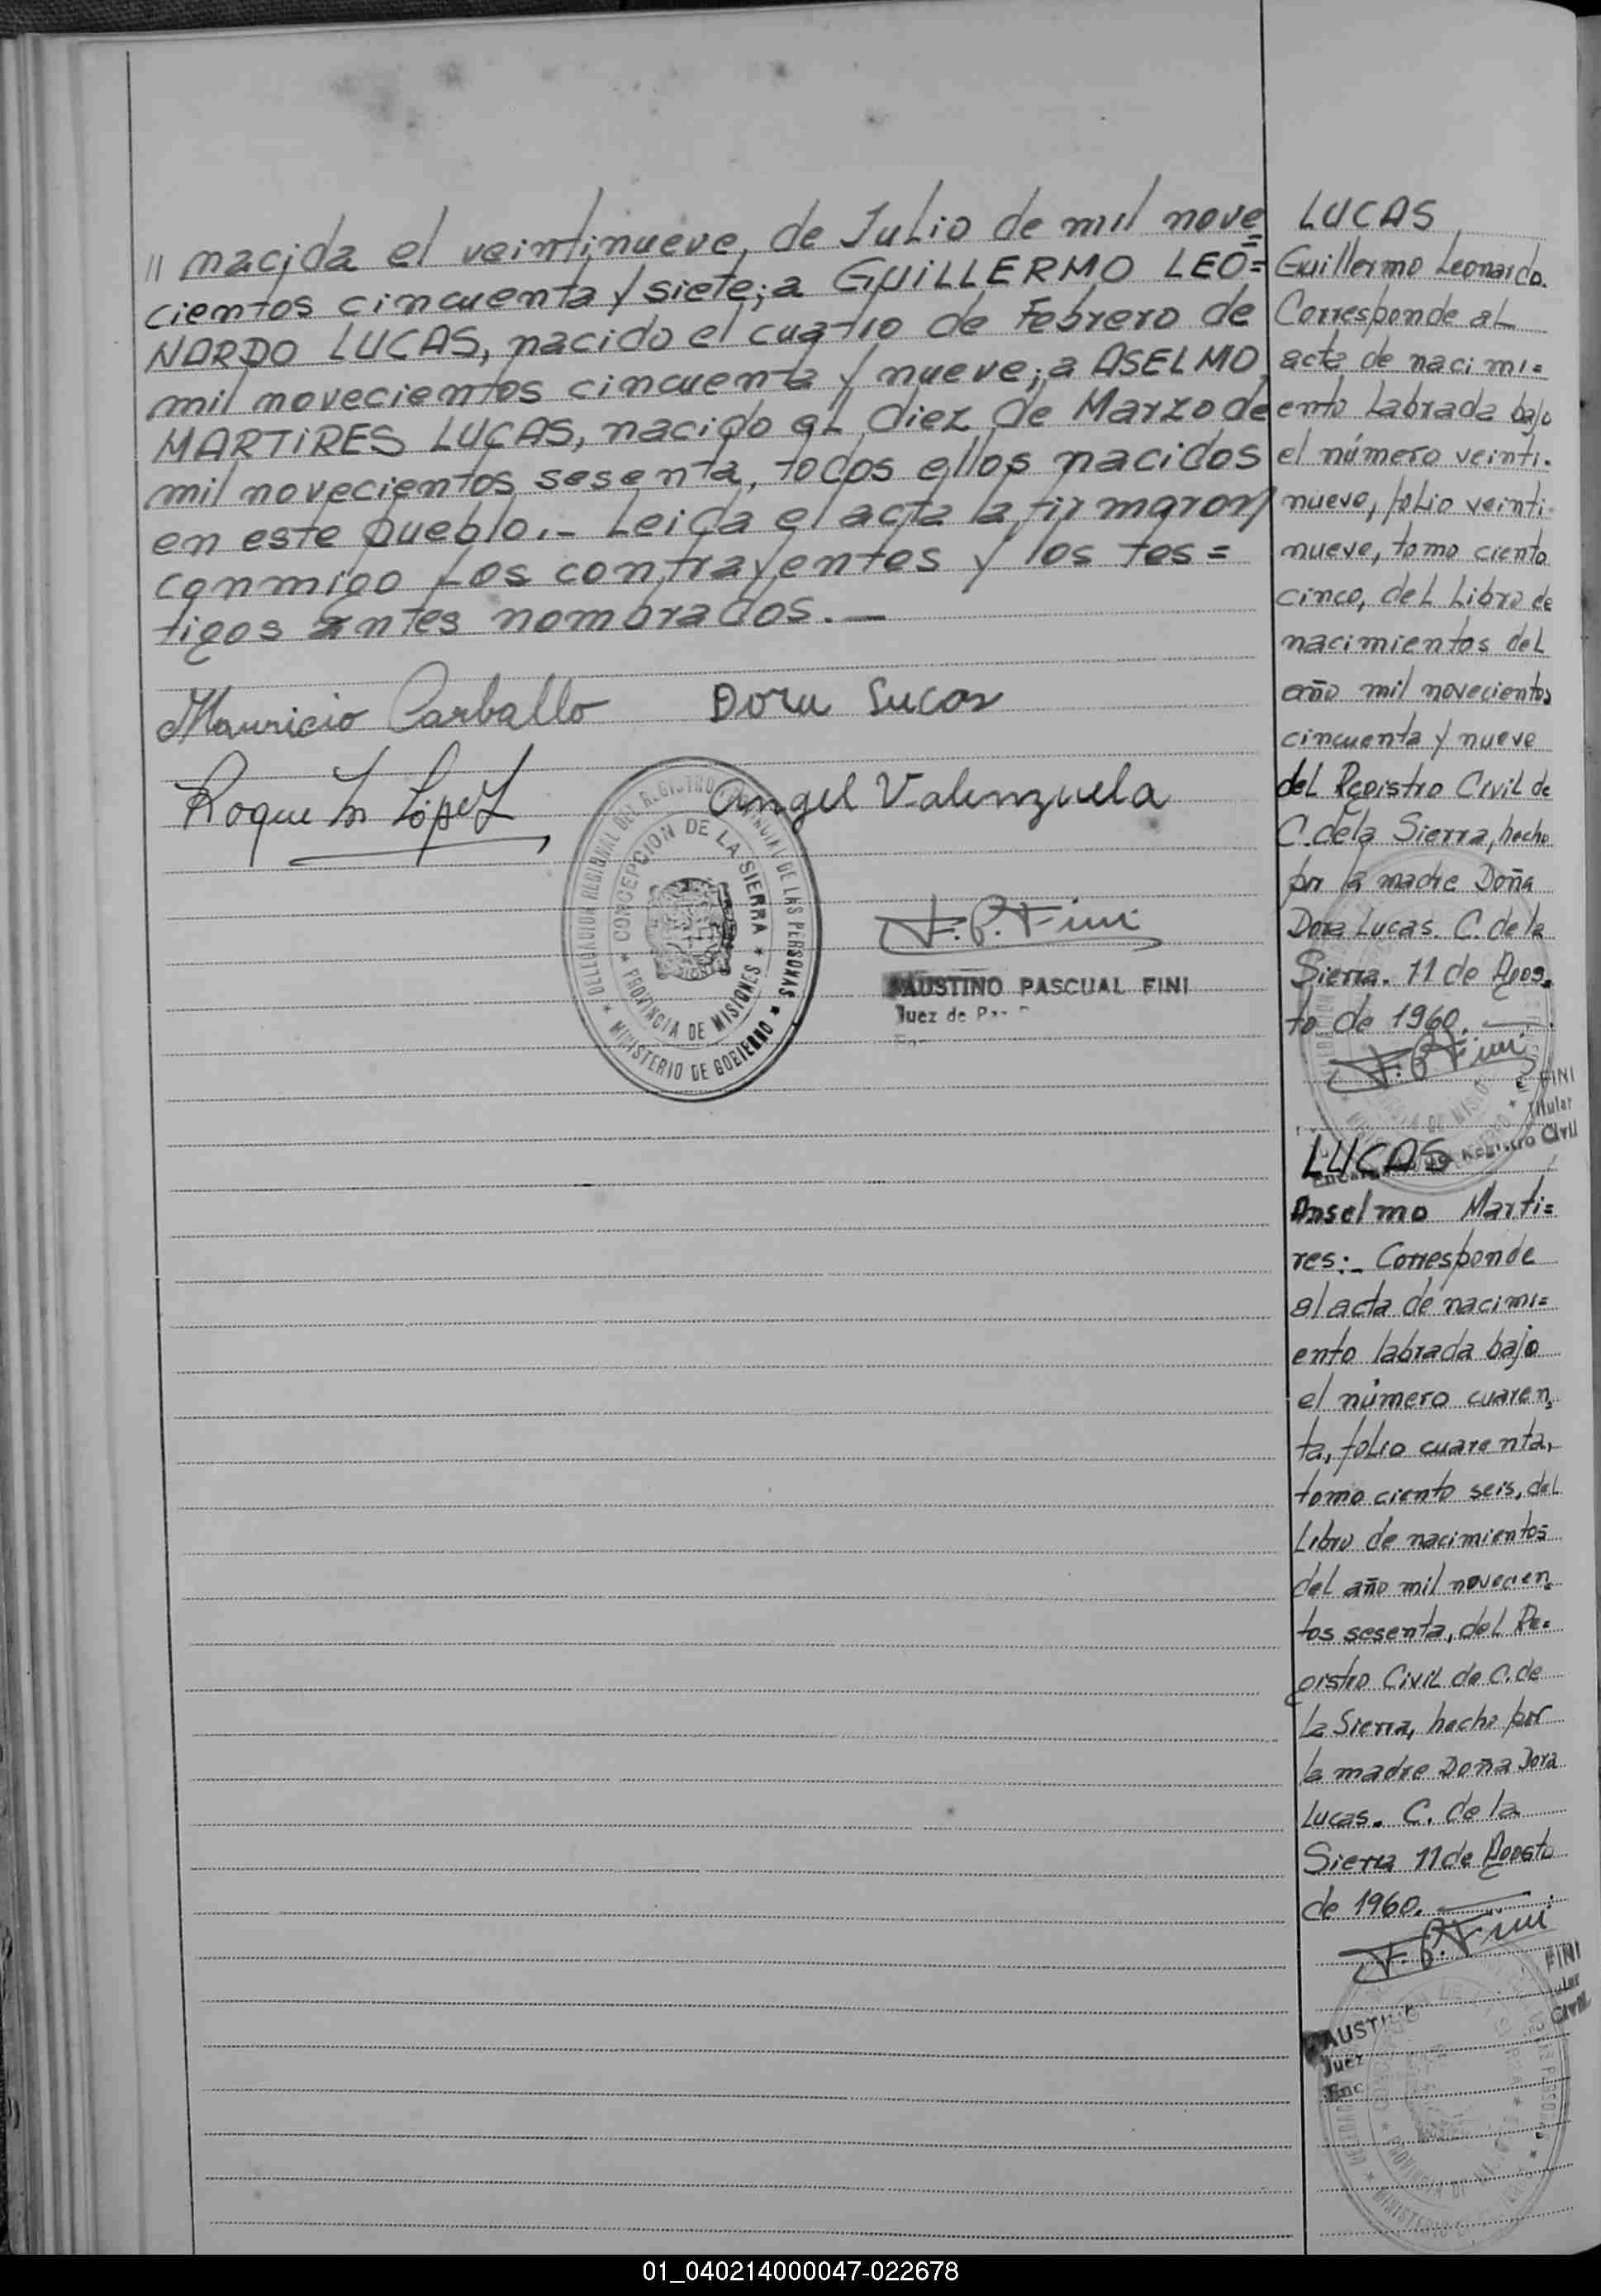 // nacida el veintinueve, de Julio de mil nove=
cientos cincuenta y siete; a GUILLERMO LEO=
NARDO LUCAS, nacido el cuatro de Febrero de
mil novecientos cincuenta y nueve; a ASELMO
MARTIRES LUCAS, nacido el diez de Marzo de
mil novecientos sesenta, todos ellos nacidos
en este pueblo.- Leida el acta la firmaron
conmigo los contrayentes y los tes=
tigos antes nombrados.—
Mauricio Carballo Dora Lucas
Roque López
Angel Valenzuela
DELEGACION REGIONAL DEL REGISTRO PROVINCIAL DE LAS PERSONAS
CONCEPCION DE LA SIERRA
PROVINCIA DE MISIONES
MINISTERIO DE GOBIERNO
F. P. Fini
FAUSTINO PASCUAL FINI
Juez de Paz
LUCAS
Guillermo Leonardo.
Corresponde al
acta de nacimi=
ento labrada bajo
el número veinti-
nueve, folio veinti-
nueve, tomo ciento
cinco, del Libro de
nacimientos del
año mil novecientos
cincuenta y nueve
del Registro Civil de
C. de la Sierra, hecho
por la madre Doña
Dora Lucas. C. de la
Sierra. 11 de Agos-
to de 1960.
F. P. Fini
FINI
Titular
Registro Civil
LUCAS
Anselmo Marti=
res:- Corresponde
al acta de nacimi=
ento labrada bajo
el número cuaren=
ta, folio cuarenta,
tomo ciento seis, del
Libro de nacimientos
del año mil novecien=
tos sesenta, del Re=
gistro Civil de C. de
la Sierra, hecho por
la madre Doña Dora
Lucas. C. de la
Sierra 11 de Agosto
de 1960.
F. P. Fini
FINI
Civil
Juez
Enc
01_040214000047-022678